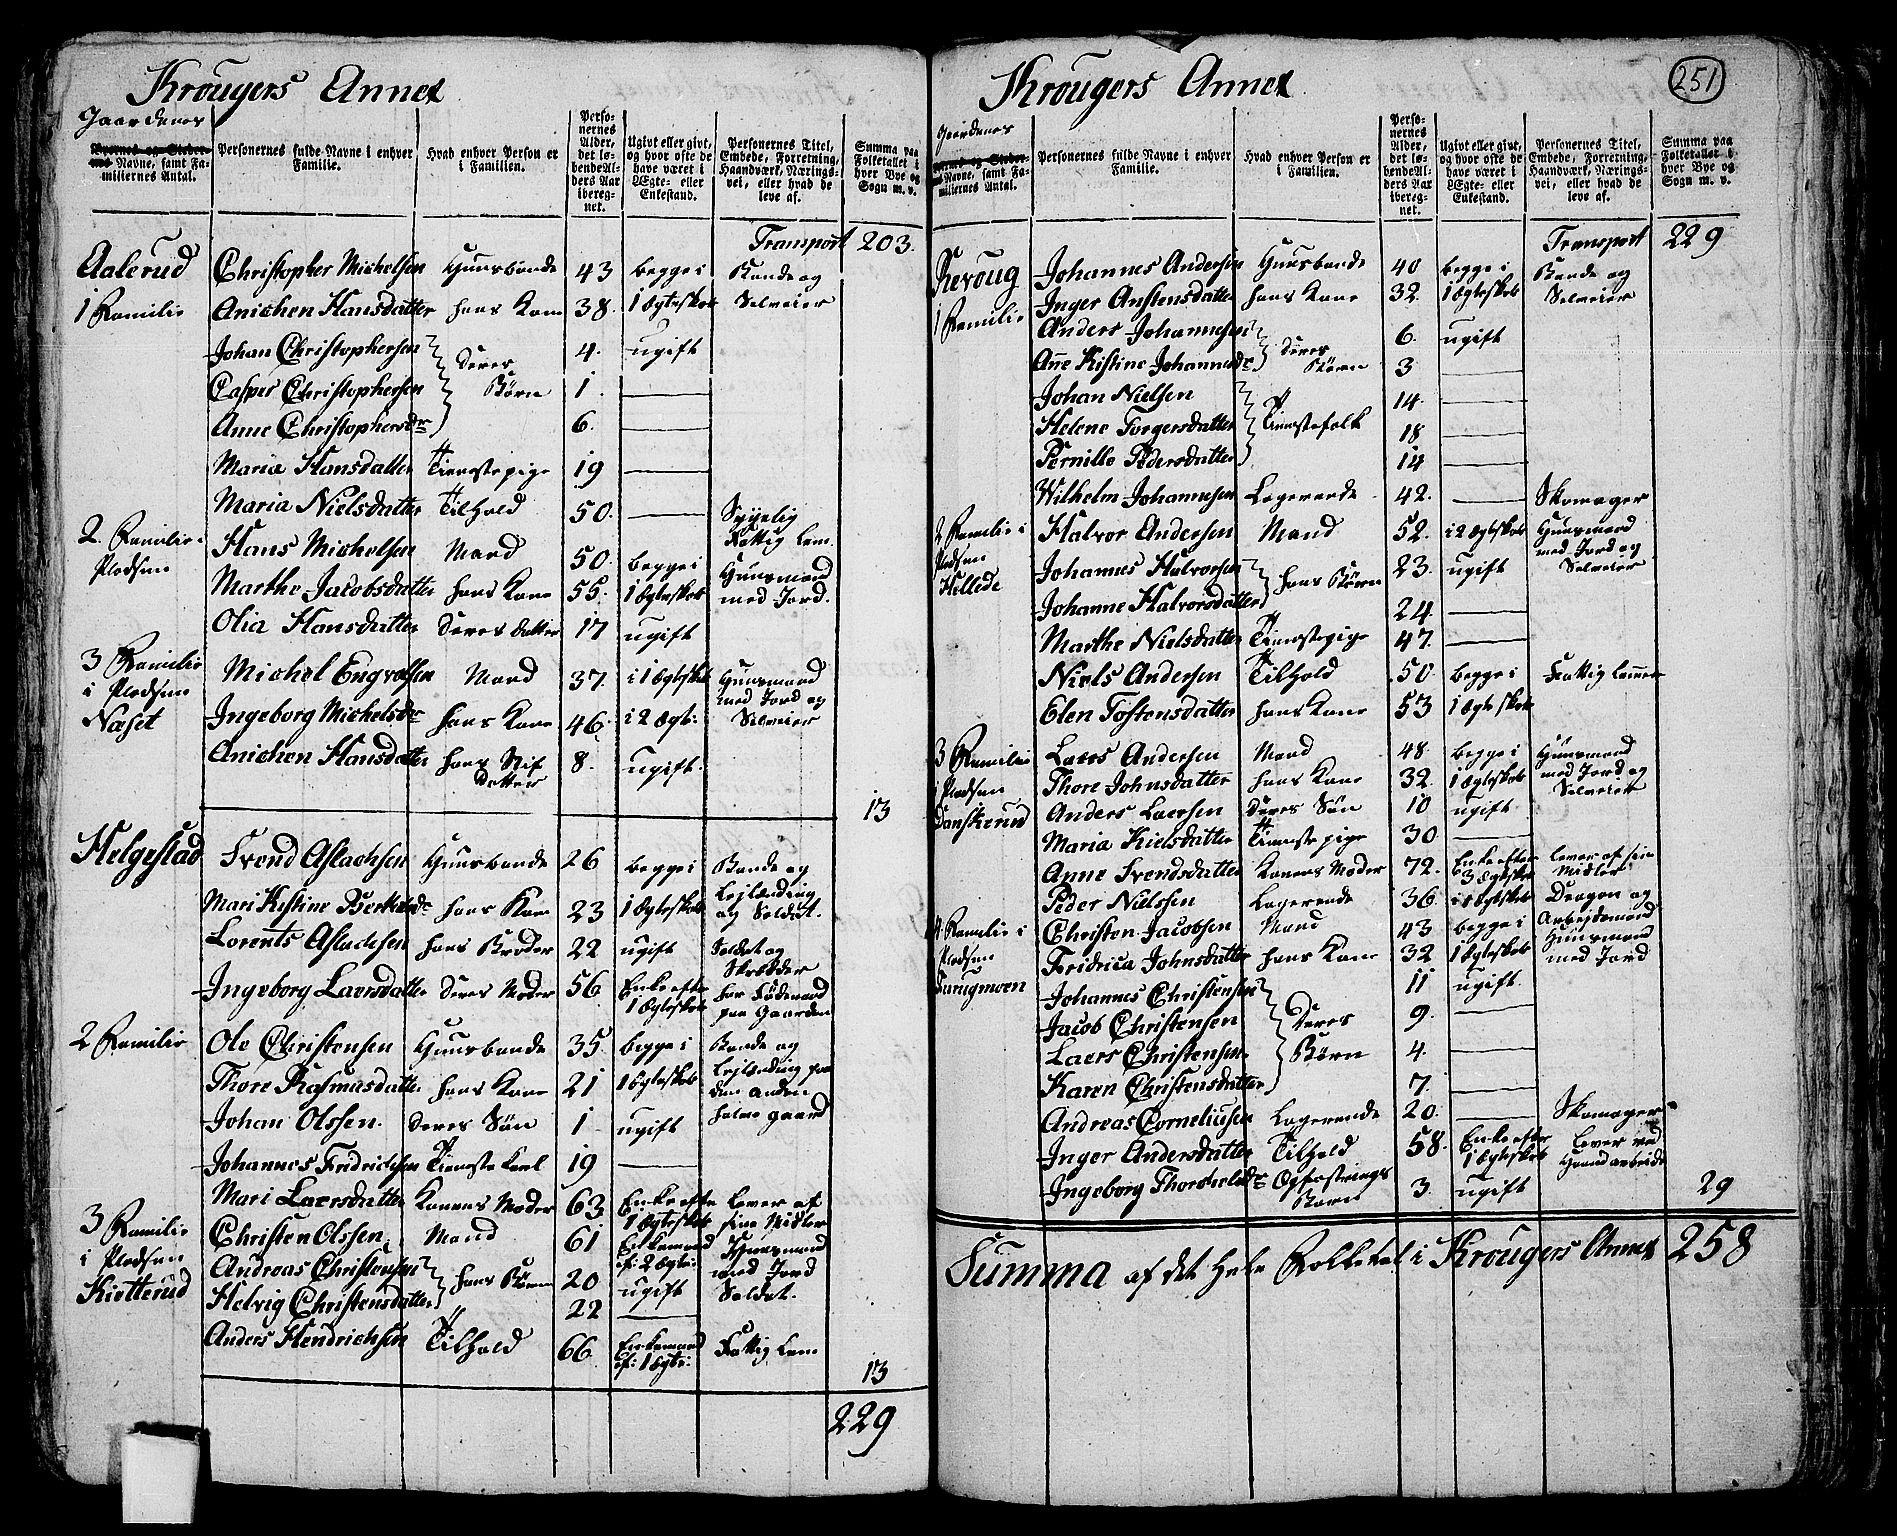 Krougers Annex
Gaardenes
Byernes og Stedernes Navne, samt Familiernes Antal.
Personernes fulde Navne i enhver Familie.
Hvad enhver Person er i Familien.
Personernes Alder, det løbendeAlders Aar iberegnet.
Ugivt eller givt, og hvor ofte de have været i Ægte- eller Enkestand.
Personernes Titel, Embede, Forretning, Haandværk, Næringsvei, eller hvad de leve af.
Summa paa Folketallet i hver Bye og Sogn m. v.
Transport 203.
Aalerud Christopher Michelsen Huusbonde 43 begge i Bonde og
1 Familie Anichen Hansdatter hans Kone 38. 1 Ægteskab Selveier
Johan Christophersen Deres 4. ugift
Casper Christophersen Børn 1.
Anne Christophersdr 6.
Maria Hansdatter Tienestepige 19
Maria Nielsdatter Tilhold 50. Sygelig
2 Familie i Hans Michelsen Mand 50. begge i Fattig Lem
Pladsen Marthe Jacobsdatter hans Kone 55. 1 Ægteskab Huusmand med Jord.
Olia Hansdatter Deres datter 17 ugift
3 Familie Michel Engvolsen Mand 37. i 1 Ægteskab Huusmand
i Pladsen Ingeborg Michelsdr hans Kone 46. i 2 Ægte: med Jord og
Næset Selveier
Anichen Hansdatter hans Stif Datter 8. ugift.
13
Helgestad Svend Aslachsen Huusbonde 26 begge i Bonde og
Mari Kistine hans Kone 23 1 Ægteskab Leilænding og Soldat.
Lorents Aslachsen hans Broder 22 ugift Soldat og Skrædder
Ingeborg Laersdatter Deres Moder 56 Enke efter 1 Ægteskab har Føderaad paa Gaarden
2 Familie Ole Christensen Huusbonde 35. begge i Bonde og
Thore Rasmusdatter hans Kone 21 1 Ægteskab Leilænding paa
Johan Olssen. deres Søn 1. ugift den anden halve gaard
Johannes Fridrichsen Tieneste karl 19
Mari Laersdatter Konens Moder 63 Enke efter 1 Ægteskab Lever af sine Midler
3 Familie Christen Olssen Mand 61 Enkemand ef: 2 Ægte: Huusmand
i Pladsen Andreas Christensen hans Børn 20 ugift med Jord Soldat.
Kietterud Helvig Christensdatter 22
Anders Hendrichsen Tilhold 66 Enkemand ef: 1 Ægte: Fattig Lem
13
229
Krougers Annex
251
Gaardenes
Byernes og Stedernes Navne, samt Familiernes Antal.
Personernes fulde Navne i enhver Familie.
Hvad enhver Person er i Familien.
Personernes Alder, det løbendeAlders Aar iberegnet.
Ugivt eller givt, og hvor ofte de have været i Ægte- eller Enkestand.
Personernes Titel, Embede, Forretning, Haandværk, Næringsvei, eller hvad de leve af.
Summa paa Folketallet i hver Bye og Sogn m. v.
Transport 229
Revoug Johannes Andersen Huusbonde 40 begge i Bonde og
Inger Anstensdatter hans Kone 32. 1 Ægteskab Selveier
1 Familie Anders Johannesen Deres 6. ugift
Añe Kistine Johannesdr Børn 3
Johan Nielsen 14.
Helene Torgersdatter Tienestefolk 18
Pernille Pedersdatter 14
Wilhelm Johannesen Logerende 42. Skomager
2 Familie i Halvor Andersen Mand 52. i 2 Ægteskab Huusmand
Pladsen Johannes Halvorsen hans Børn 23. ugift med Jord og Selveier
Hellede Johanne Halvorsdatter 24
Marthe Nielsdatter Tienestepige 47.
Niels Andersen Tilhold 50. begge i Fattig Lemmer
Elen Tostensdatter hans Kone 53 1 Ægteskab
3 Familie Laers Andersen Mand 48. begge i Huusmand
i Pladsen Thore Johnsdatter hans Kone 32. 1 Ægteskab med Jord og
Danskerud Anders Laersen Deres Søn 10 ugift Selveier
Maria Kielsdatter Tieneste pige 30
Anne Svendsdatter Konens Moder 72. Enke efter 3 Ægteskab Lever af sin Midler
Peder Nielssen Logerende 36. i 1 Ægteskab Dragon og Arbeidsmand
4 Familie i Christen Jacobsen Mand 43 begge i Huusmand
Pladsen Fridrica Johnsdatter hans Kone 32 1 Ægteskab med Jord
Furugmoen Johannes Christensen 11 ugift.
Jacob Christensen Deres 9.
Laers Christensen Børn 4.
Karen Christensdatter 7.
Andreas Corneliusen Logerende 20. Skomager
Inger Andersdatter Tilhold 58. Enke efter 1 Ægteskab Lever ved Haandarbeide
Ingeborg Thorkeldr Opfostrings Barn 3. ugift 29
Summa af det hele Folketal i Krougers Annex 258